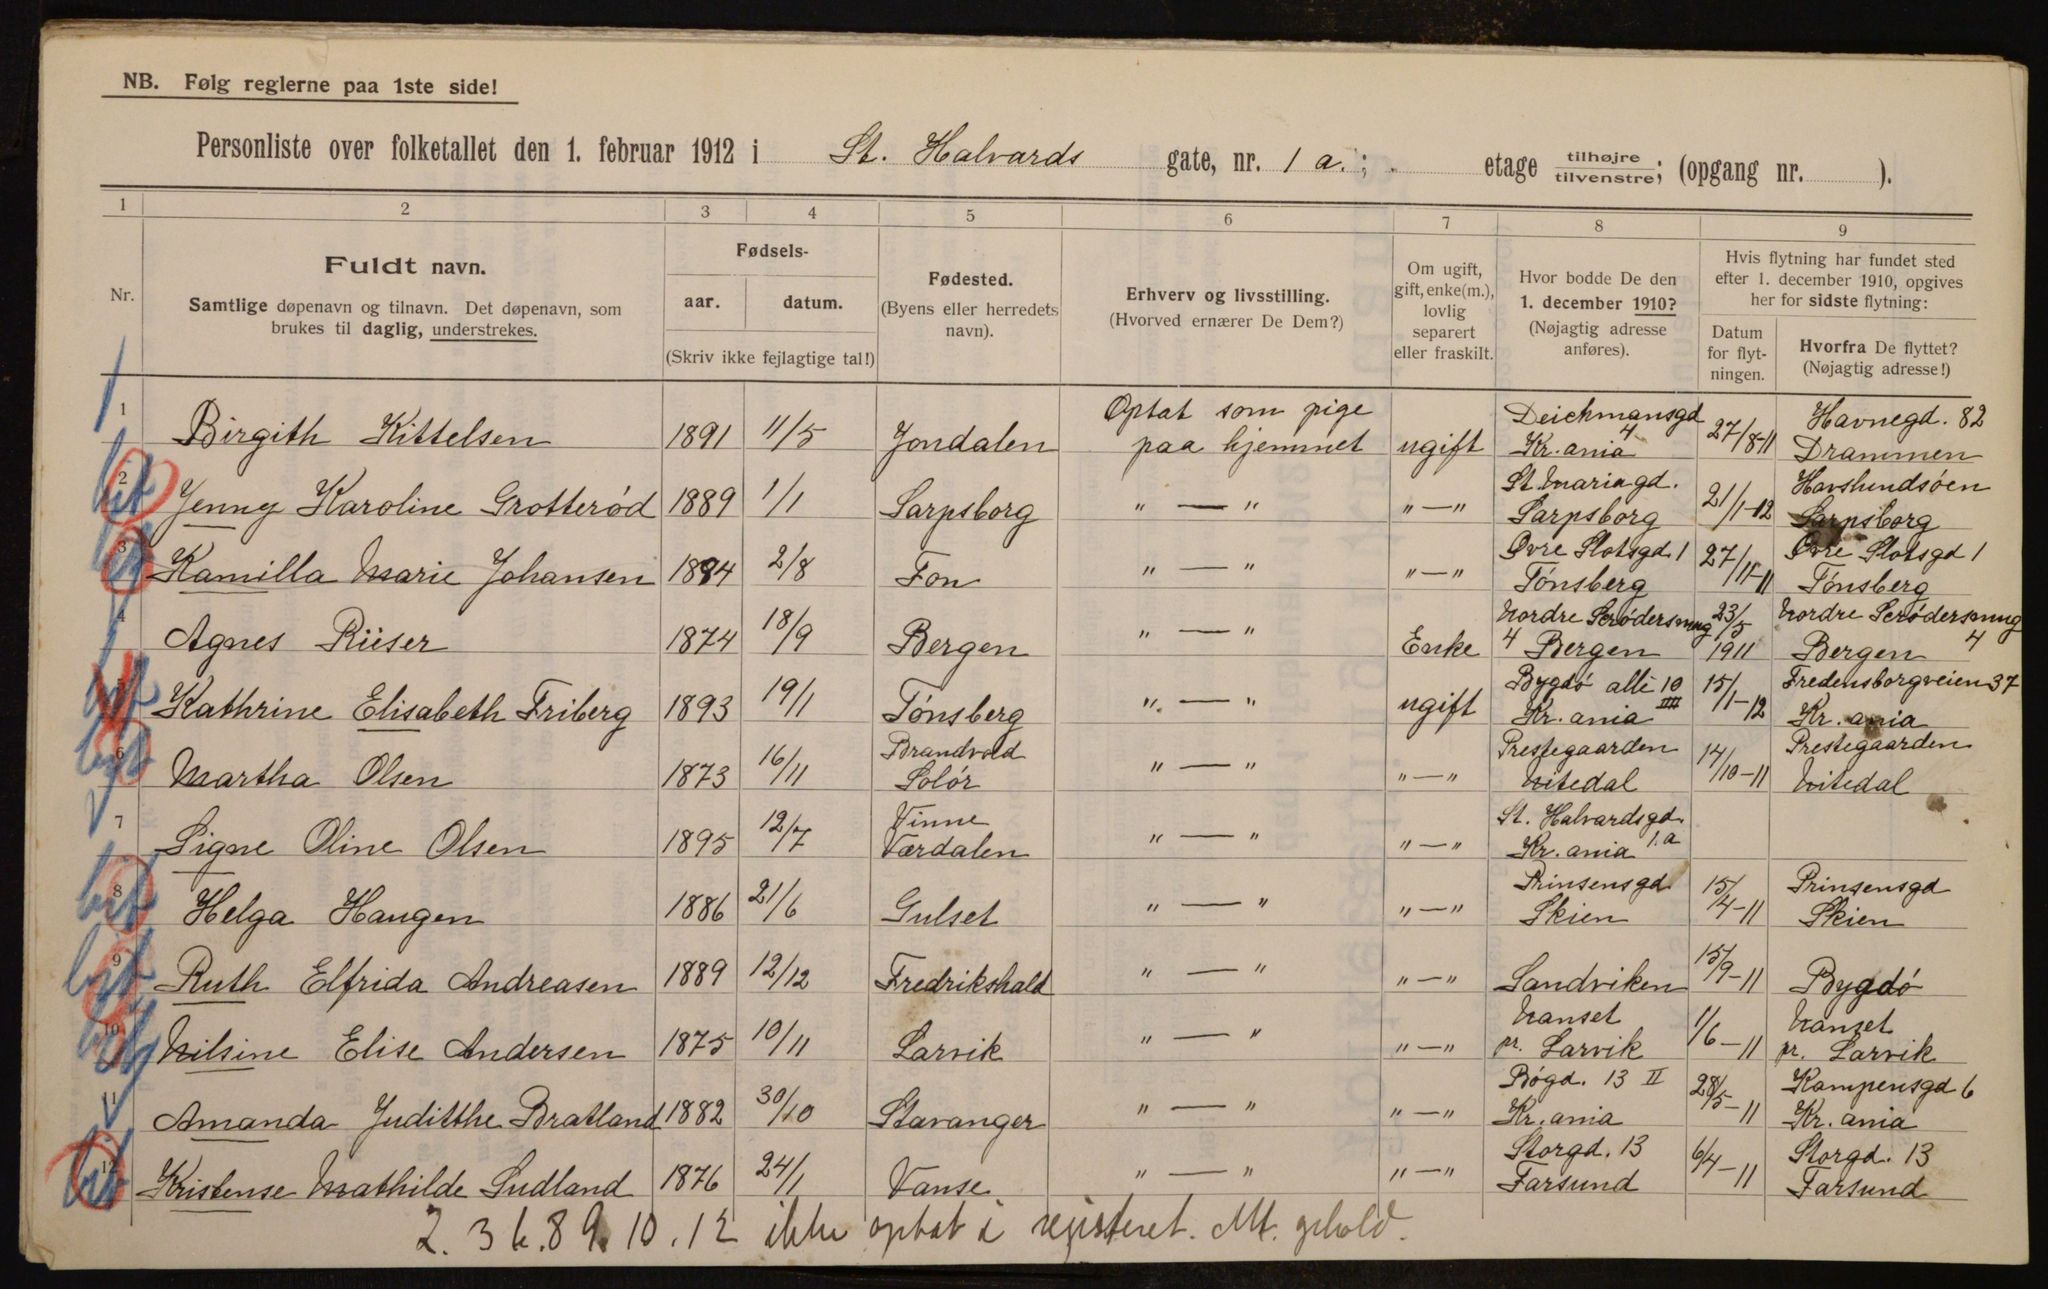 NB. Følg reglerne paa 1ste side!
Personliste over folketallet den 1. februar 1912 i St. Halvards gate, nr. 1 a.; . etage tilhøjre tilvenstre; (opgang nr. ).
1 2 3 4 5 6 7 8 9
Nr.
Fuldt navn.
Samtlige døpenavn og tilnavn. Det døpenavn, som
brukes til daglig, understrekes.
Fødsels-
aar. datum.
(Skriv ikke fejlagtige tal!)
Fødested.
(Byens eller herredets
navn).
Erhverv og livsstilling.
(Hvorved ernærer De Dem?)
Om ugift,
gift, enke(m.),
lovlig
separert
eller fraskilt.
Hvor bodde De den
1. december 1910?
(Nøjagtig adresse
anføres).
Hvis flytning har fundet sted
efter 1. december 1910, opgives
her for sidste flytning:
Datum
for flyt-
ningen.
Hvorfra De flyttet?
(Nøjagtig adresse!)
1 Birgith Kittelsen 1891 11/5 Jondalen Optat som pige paa hjemmet ugift Deichmansgd 4 Kr.ania 27/8-11 Havnegd. 82 Drammen
2 Jenny Karoline Grotterød 1889 1/1 Sarpsborg " — " " — " St. Mariagd. Sarpsborg 21/1-12 Havslundsøen Sarpsborg
3 Kamilla Marie Johansen 1894 2/8 Fon " — " " — " Øvre Slotsgd 1 Tønsberg 27/11-11 Øvre Slotsgd 1 Tønsberg
4 Agnes Rieser 1874 18/9 Bergen " — " Enke Nordre Scrødersmug 4 Bergen 23/5 1911 Nordre Scrødersmug 4 Bergen
Kathrine Elisabeth Friberg 1893 19/1 Tønsberg " — " ugift Bygdø allé 10 IIII Kr.ania 15/1-12 Fredensborgveien 37 Kr.ania
6 Martha Olsen 1873 16/11 Brandvold Solør " — " " — " Prestegaarden Nitedal 14/10-11 Prestegaarden Nitedal
7 Signe Oline Olsen 1895 12/7 Vinne Værdalen " — " " — " St. Halvardsgd. 1.a Kr.ania
8 Helga Haugen 1886 21/6 Gulset " — " " — " Prinsensgd Skien 15/4-11 Prinsensgd Skien
9 Ruth Elfrida Andreasen 1889 12/12 Fredrikshald " — " " — " Sandviken 15/9-11 Bygdø
10 Nilsine Elise Andersen 1875 10/11 Larvik " — " " — " Nanset pr. Larvik 1/6-11 Nanset pr. Larvik
11 Amanda Juditthe Bratland 1882 30/10 Stavanger " — " " — " Bøgd. 13 II Kr.ania 28/5-11 Kampensgd 6 Kr.ania
12 Kristense Mathilde Sudland 1876 24/1 Vanse " — " " — " Storgd. 13 Farsund 6/4-11 Storgd. 13 Farsund
2. 3 6. 8 9. 10. 12 ikke optat i registeret.